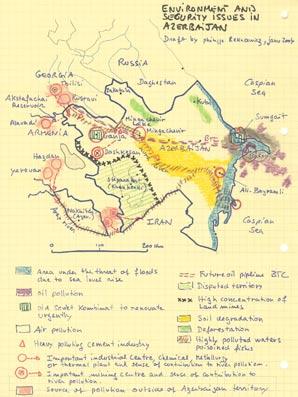 ENVIRONMENT AND
SECURITY ISSUES IN
AZERBAIJAN
Draft by philippe Rekacewicz, june 2004
RUSSIA
Daghestan
Caspian
Sea
GEORGIA
Tbilisi
Rustavi
Zakatala
Kuba
Akstafachai
Reservoir
Mingechavir
Mingechavir
Sumgait
Alaverdi
ARMENIA
Ganja
BTC
AZERBAIJAN
Dashkesan
Hrazdan
yerevan
Ali-Bayramli
Nakhichevan
(Azer.)
IRAN
Caspian
Sea
0
200 km
Area under the threat of floods
due to sea level rise
Oil pollution
Old Soviet Kombinat to renovate
urgently
Air pollution
Heavy polluting cement industry
Important industrial centre, chemical, metallurgy
or thermal plant and sense of contribution to river pollution.
Important mining centre and sense of contribution to
river pollution.
Source of pollution outside of Azerbaijan territory
Future oil pipeline BTC
Disputed territory
High concentration of
land mines
Soil degradation
Deforestation
Highly polluted waters
poisoned fishs